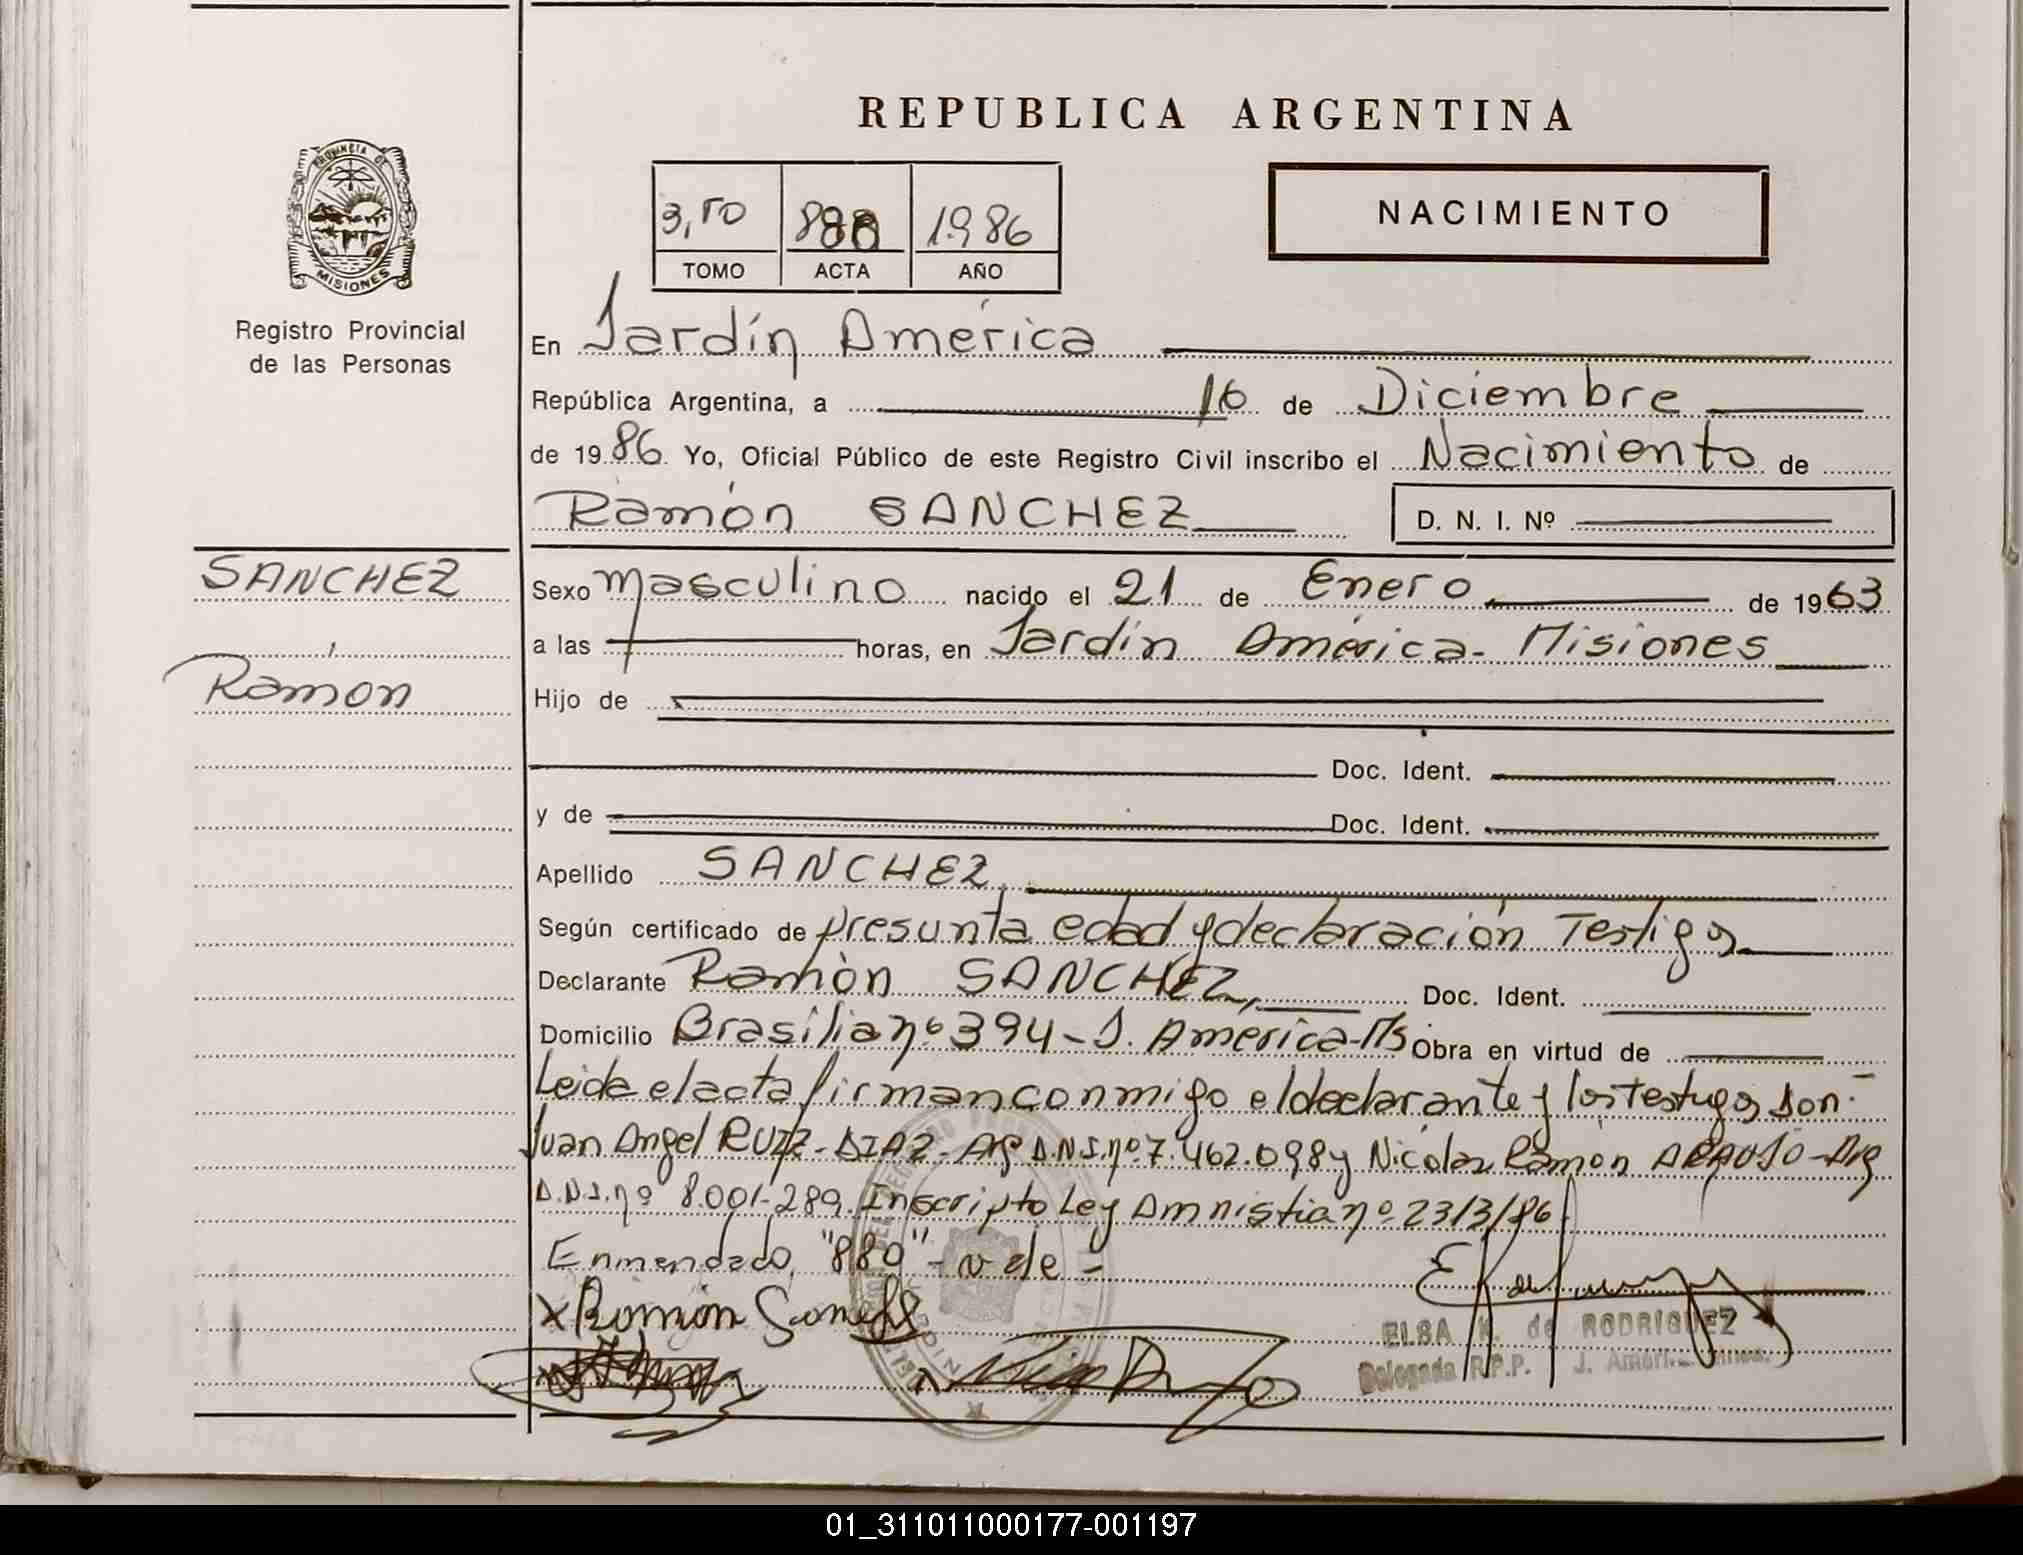 REPUBLICA ARGENTINA
PROVINCIA DE
MISIONES
Registro Provincial
de las Personas
3,50 880 1986
TOMO ACTA AÑO
NACIMIENTO
En Jardín América
República Argentina, a 16 de Diciembre
de 1986 Yo, Oficial Público de este Registro Civil inscribo el Nacimiento de
Ramón SANCHEZ D. N. I. Nº
SANCHEZ
Ramón
Sexo masculino nacido el 21 de Enero de 1963
a las horas, en Jardín América - Misiones
Hijo de
Doc. Ident.
y de Doc. Ident.
Apellido SANCHEZ
Según certificado de presunta edad y declaración Testigos
Declarante Ramón SANCHEZ, Doc. Ident.
Domicilio Brasilia nº 394 - J. América - Ms Obra en virtud de
Leida el acta firman conmigo el declarante y los testigos son:
Juan Angel RUIZ - DIAZ - Arg D.N.I. nº 7.462.098 y Nicolás Ramón ARAUJO - Arg
D.N.I. nº 8.001.289. Inscripto Ley Amnistia nº 2313/86
Enmendado "880" - vale -
x Ramón Sanchez
ELSA K. de RODRIGUEZ
Delegada R.P.P. J. Améri
01_311011000177-001197